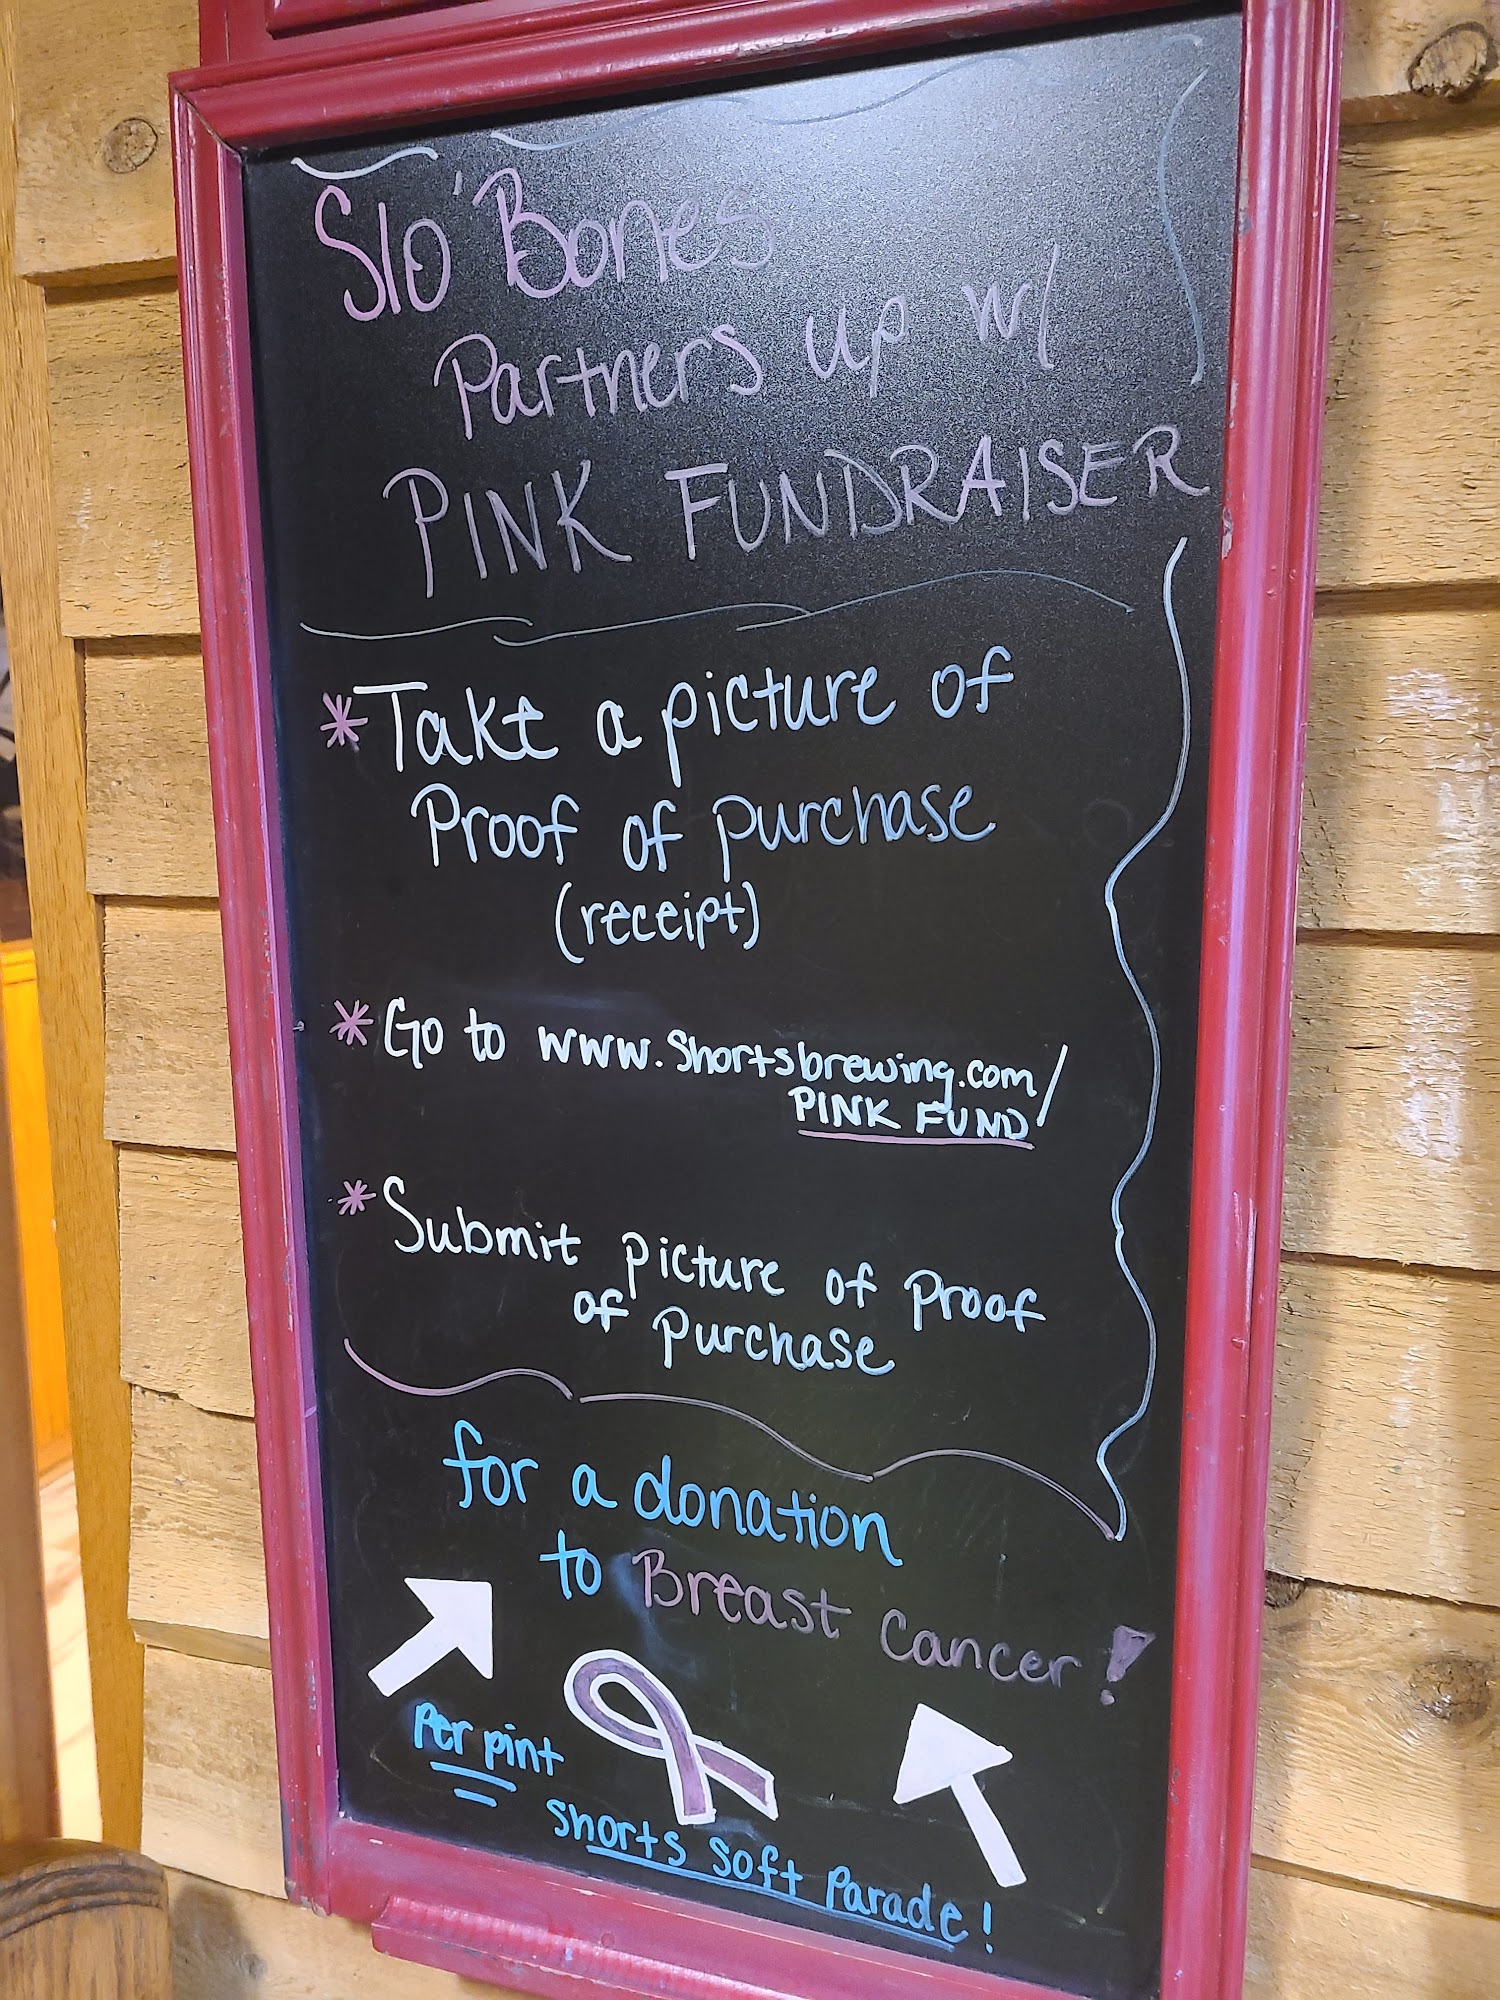 Slo' Bones
Partners up w/
PINK FUNDRAISER
*Take a picture of
Proof of purchase
(receipt)
*Go to www.shortsbrewing.com/
PINK FUND
*Submit picture of proof
of purchase
for a donation
to Breast Cancer!
Per pint
shorts soft parade!